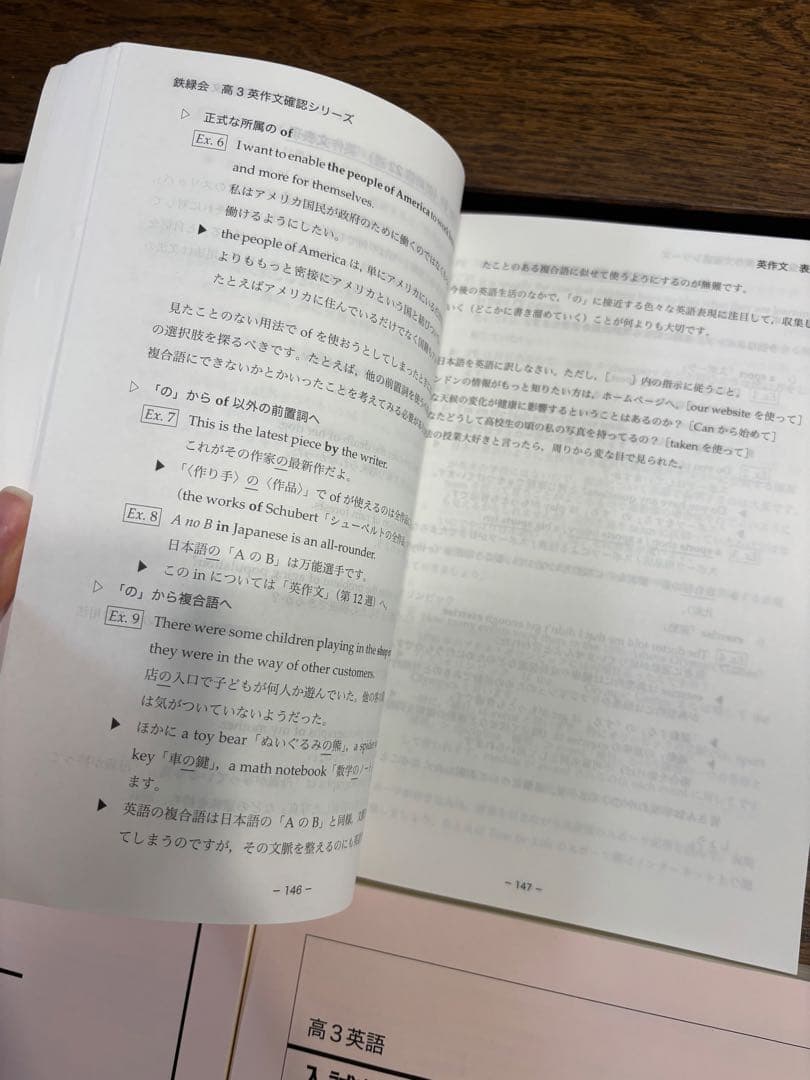 鉄緑会 高3英作文確認シリーズ
▷ 正式な所属の of
Ex. 6 I want to enable the people of America to
and more for themselves.
私はアメリカ国民が政府のために働くのではなく
働けるようにしたい。
▶ the people of America は,単にアメリカにいる
よりももっと密接にアメリカという国と結び
たとえばアメリカに住んでいるだけでなく国籍も
見たことのない用法で of を使おうとしてしまったときに
の選択肢を探るべきです。たとえば,他の前置詞を使う
複合語にできないかとかいったことを考えてみる必要が
▷ 「の」から of 以外の前置詞へ
Ex. 7 This is the latest piece by the writer.
これがその作家の最新作だよ。
▶ 「〈作り手〉の〈作品〉」で of が使えるのは全作品
(the works of Schubert「シューベルトの全作品
Ex. 8 A no B in Japanese is an all-rounder.
日本語の「A の B」は万能選手です。
▶ この in については「英作文」(第12週)へ。
▷ 「の」から複合語へ
Ex. 9 There were some children playing in the shop
they were in the way of other customers.
店の入口で子どもが何人か遊んでいた。他の客の
は気がついていないようだった。
▶ ほかに a toy bear「ぬいぐるみの熊」, a
key「車の鍵」, a math notebook「数学のノート
ます。
▶ 英語の複合語は日本語の「A の B」と同様,
てしまうのですが,その文脈を整えるのにも
– 146 –
英作文 表
たことのある複合語に似せて使うようにするのが無難です。
今後の英語生活のなかで,「の」に接近する色々な英語表現に注目して,収集し
いく(どこかに書き溜めていく)ことが何よりも大切です。
日本語を英語に訳しなさい。ただし,[ ]内の指示に従うこと。
ンドンの情報がもっと知りたい方は,ホームページへ。[our website を使って]
な天候の変化が健康に影響するということはあるのか?[Can から始めて]
なたどうして高校生の頃の私の写真を持ってるの?[taken を使って]
法の授業大好きと言ったら,周りから変な目で見られた。
– 147 –
高3英語